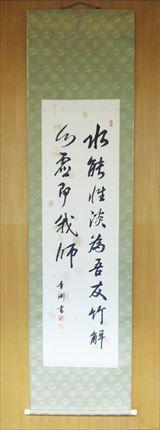 水能性淡為吾友竹解
心虚即我師